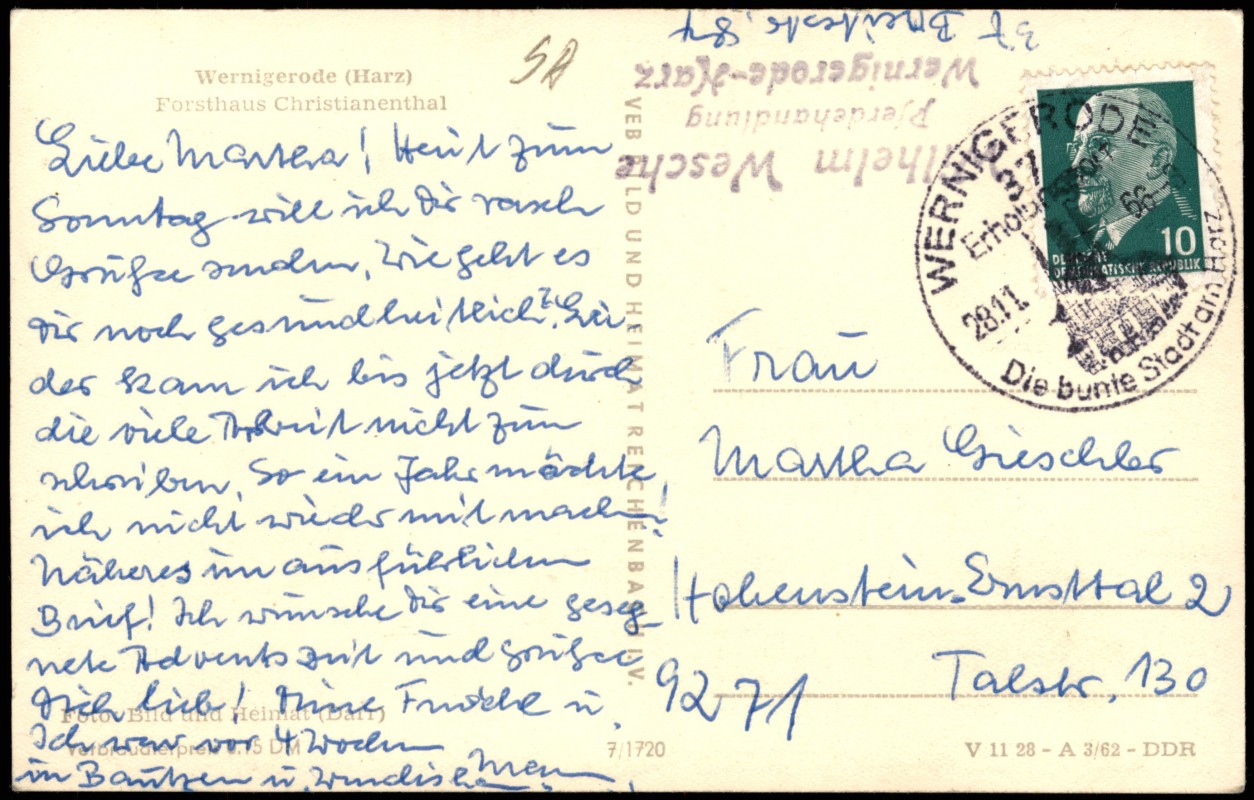 Wernigerode (Harz)
Forsthaus Christianenthal
Liebe Martha! Heut zum
Sonntag will ich Dir rasch
Grüße senden, wie geht es
Dir noch gesundheitlich? Lei
der kam ich bis jetzt durch
die viele Arbeit nicht zum
schreiben. So ein Jahr möchte
ich nicht wieder mitmachen.
Näheres im ausführlichen
Brief! Ich wünsche Dir eine geseg-
nete Adventszeit und grüße
Dich lieb! Deine u.
Ich war vor 4 Wochen
in Bautzen u.
Foto: Bild und Heimat (Darr)
Verbraucherpreis 0.15 DM
VEB BILD UND HEIMAT REICHENBACH I. V.
7/1720
V 11 28 - A 3/62 - DDR
Wilhelm Wesche
Pferdehandlung
Wernigerode-Harz
37 84
WERNIGERODE
37
Erholungsort
28.11. 66
Die bunte Stadt am Harz
10
DEUTSCHE
DEMOKRATISCHE REPUBLIK
Frau
Martha Gieschler
Hohenstein-Ernstthal 2
9271 Talstr. 130